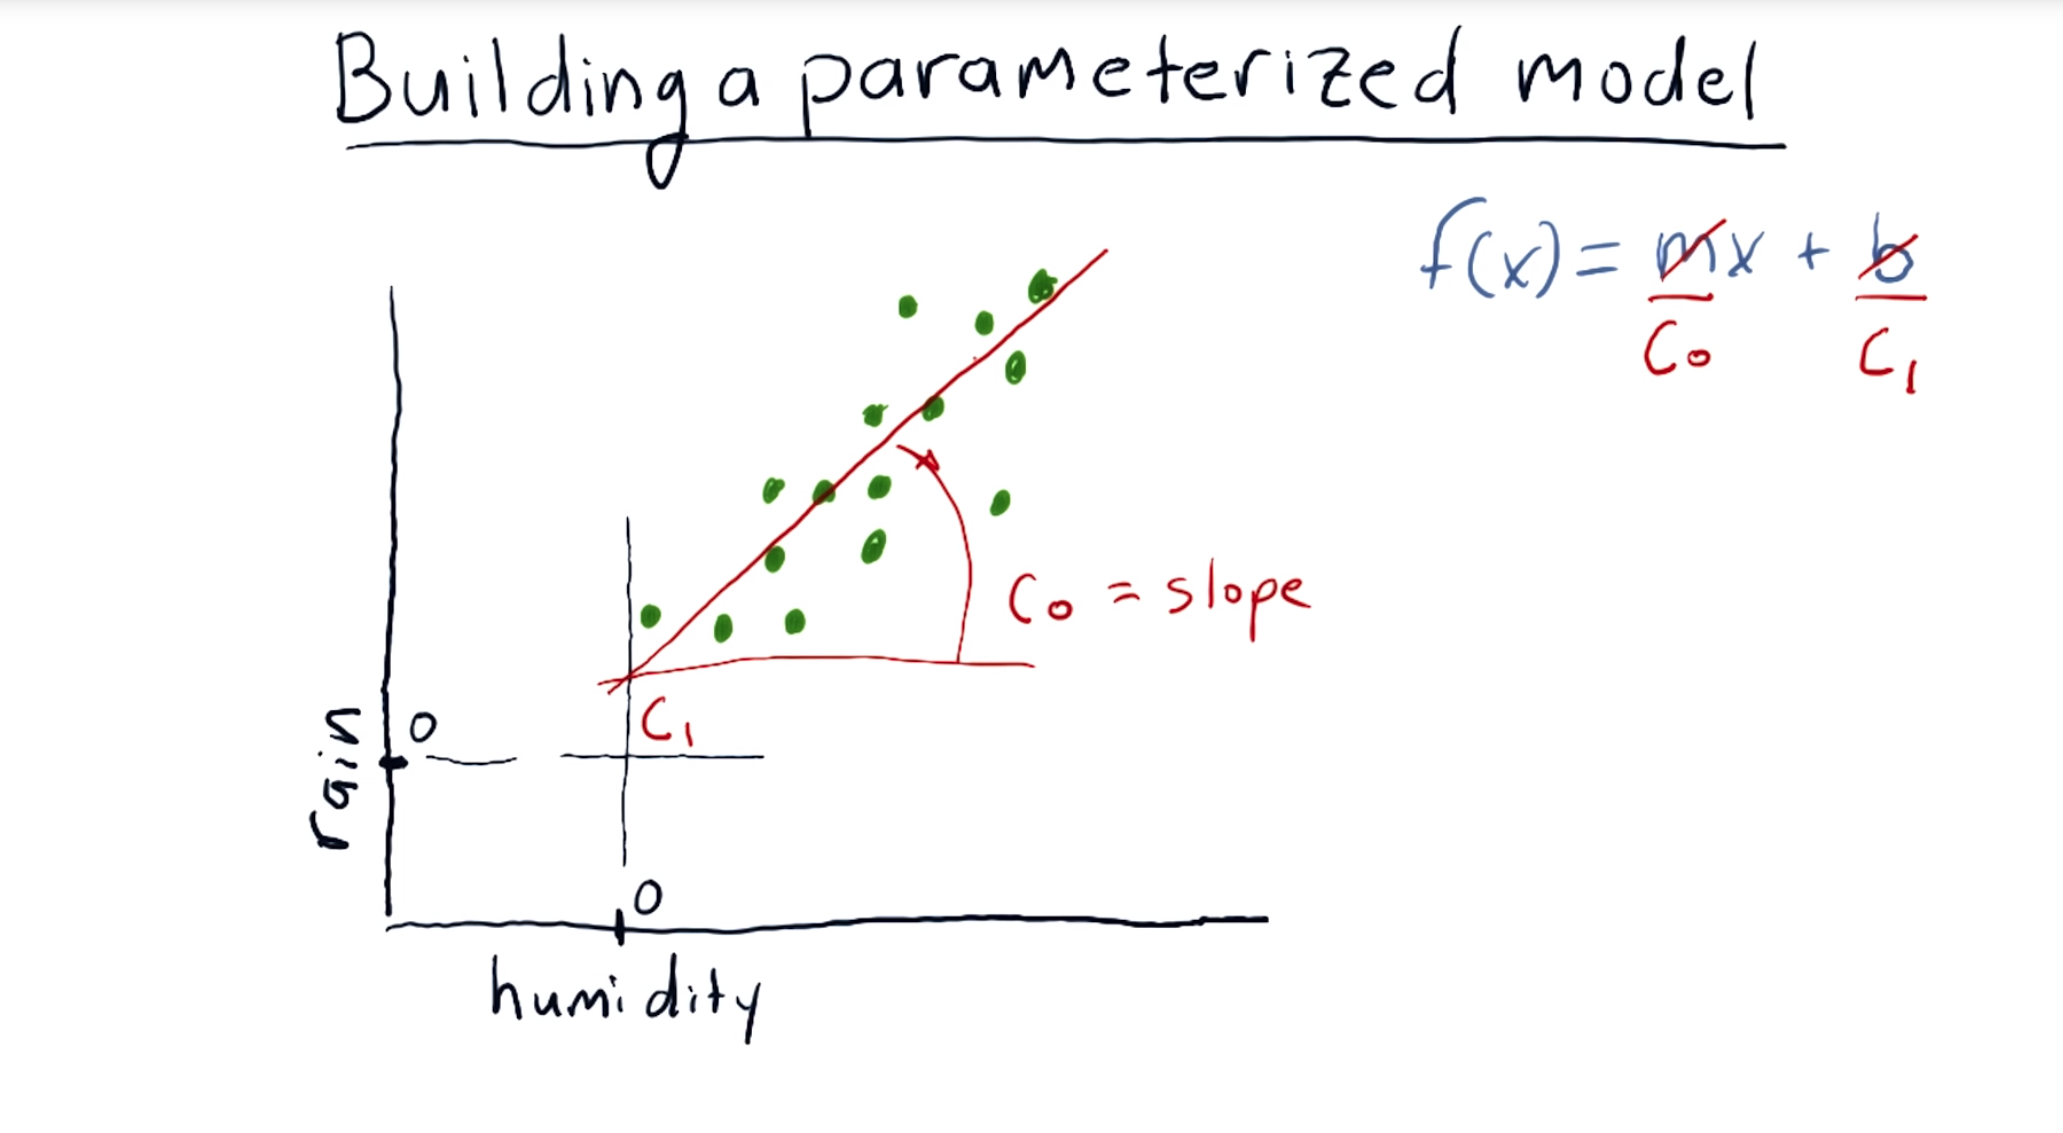 Building a parameterized model
f(x) = mx + b
C₀ C₁
C₀ = slope
C₁
0
rain
0
humidity